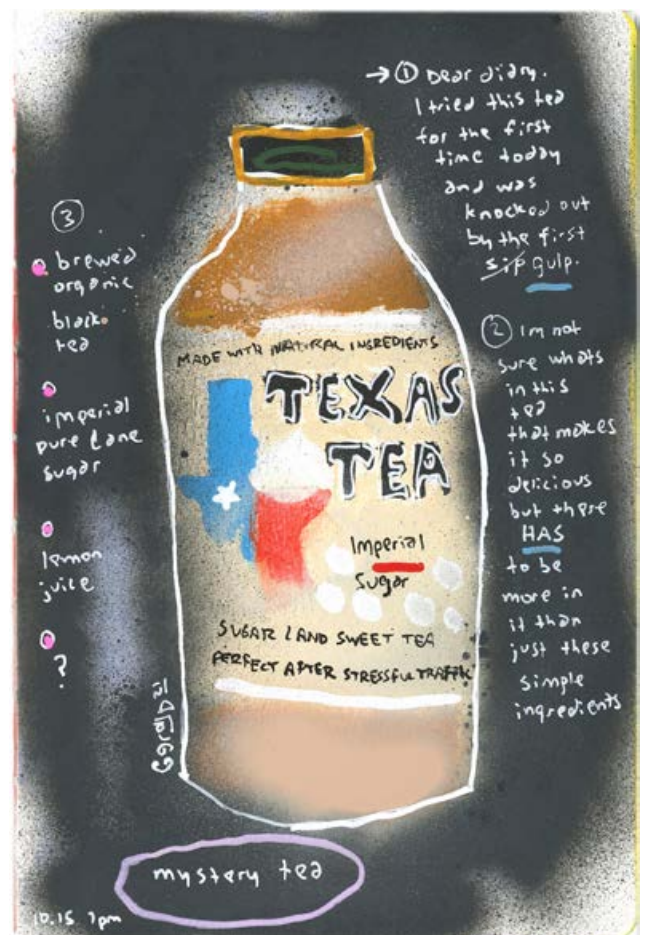 → ① Dear diary.
I tried this tea
for the first
time today
and was
knocked out
by the first
sip gulp.
② Im not
sure whats
in this
tea
that makes
it so
delicious
but there
HAS
to be
more in
it than
just these
simple
ingredients
③
brewed
organic
black
tea
imperial
pure cane
sugar
lemon
juice
?
MADE WITH NATURAL INGREDIENTS
TEXAS
TEA
Imperial
Sugar
SUGAR LAND SWEET TEA
PERFECT AFTER STRESSFUL TRAFFIK
mystery tea
10.15 7pm